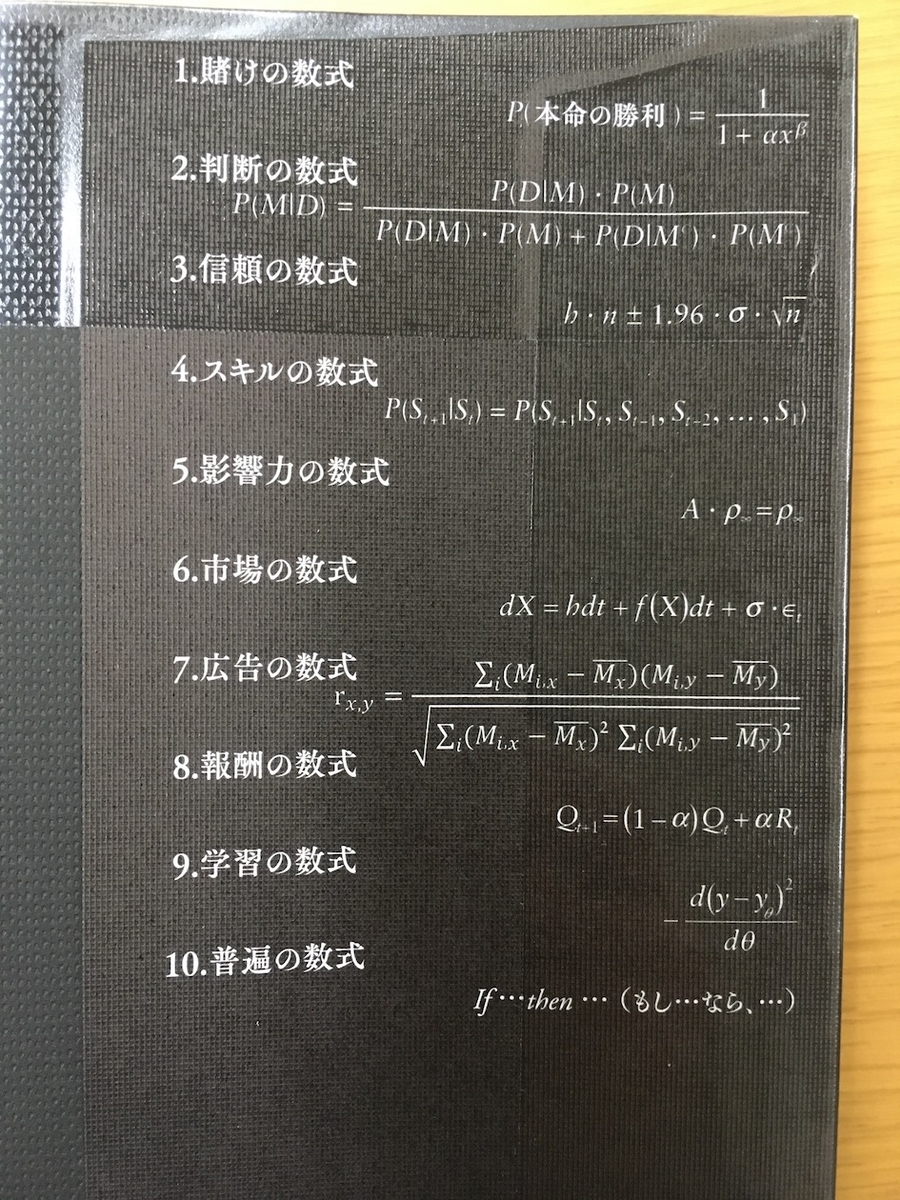 1.賭けの数式
P(本命の勝利) = 1 / (1 + αx^β)
2.判断の数式
P(M|D) = P(D|M) · P(M) / (P(D|M) · P(M) + P(D|Mᶜ) · P(Mᶜ))
3.信頼の数式
h · n ± 1.96 · σ · √n
4.スキルの数式
P(S_{t+1}|S_t) = P(S_{t+1}|S_t, S_{t−1}, S_{t−2}, … , S_1)
5.影響力の数式
A · ρ_∞ = ρ_∞
6.市場の数式
dX = hdt + f(X)dt + σ · ϵ_t
7.広告の数式
r_{x,y} = Σ_i(M_{i,x} − M̅_x̅)(M_{i,y} − M̅_y̅) / √(Σ_i(M_{i,x} − M̅_x̅)² Σ_i(M_{i,y} − M̅_y̅)²)
8.報酬の数式
Q_{t+1} = (1 − α)Q_t + αR_t
9.学習の数式
− d(y − y_θ)² / dθ
10.普遍の数式
If…then … (もし…なら、…)